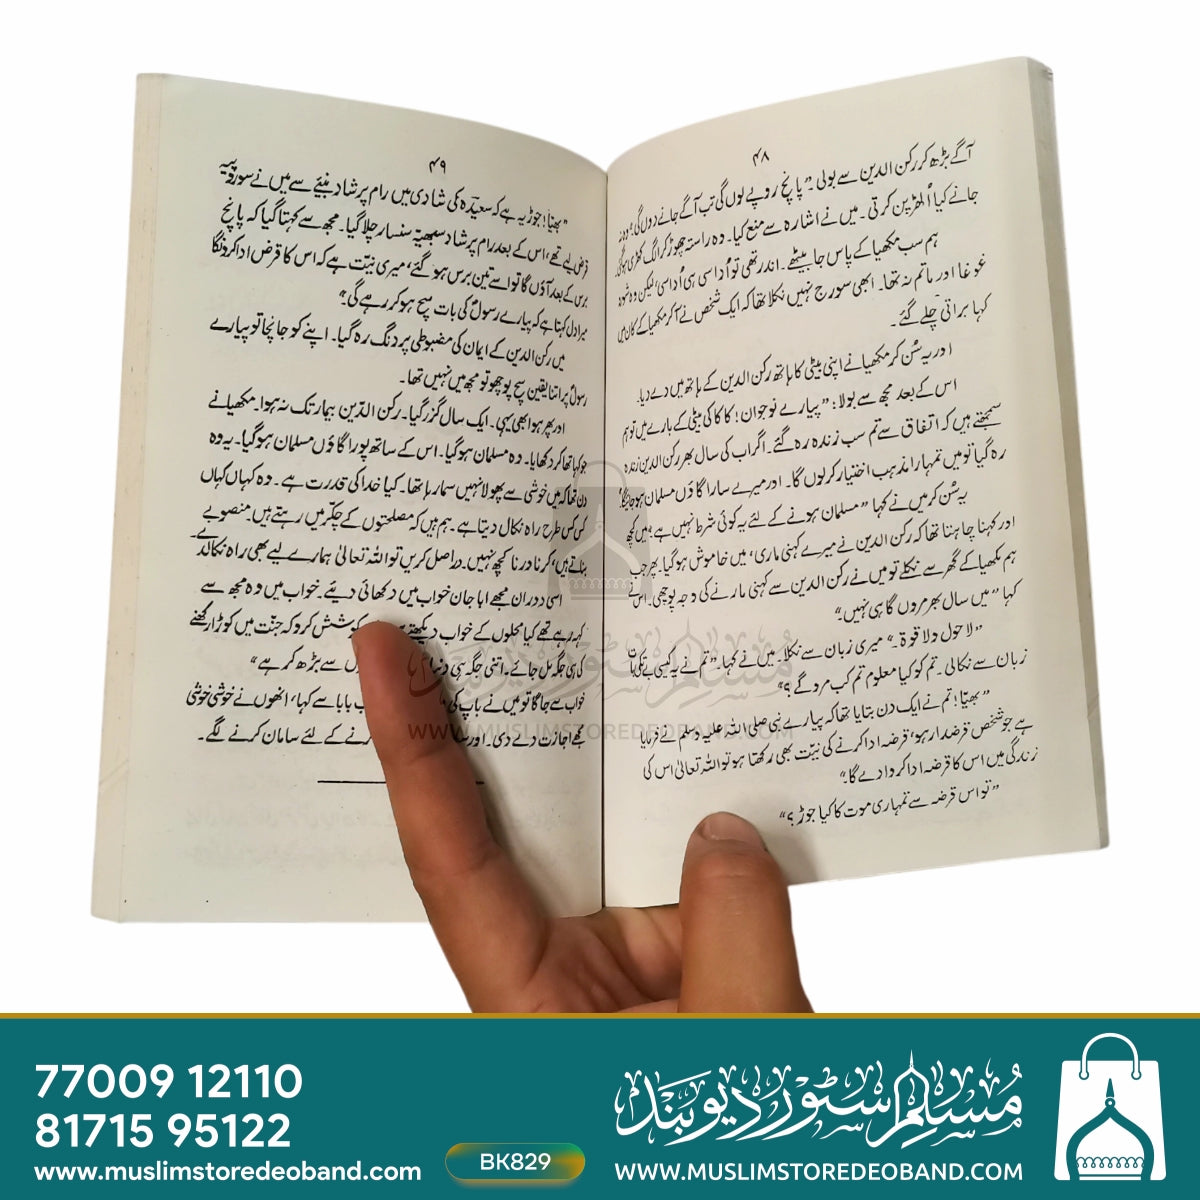 ۴۸
آگے بڑھ کر رکن الدین سے بولی۔ "پانچ روپے لوں گی تب آگے جانے دوں گی! ورنہ
جانے کیا اُلھڑپن کرتی۔ میں نے اشارہ سے منع کیا۔ وہ راستہ چھوڑ کر الگ کھڑی ہوگئی
ہم سب مکھیا کے پاس جا بیٹھے۔ اندر تھی تو اُداسی ہی اُداسی، لیکن وہ شور و
غوغا اور ماتم نہ تھا۔ ابھی سورج نہیں نکلا تھا کہ ایک شخص نے آکر مکھیا کے کان میں
کہا براتی چلے گئے۔
اور یہ سُن کر مکھیا نے اپنی بیٹی کا ہاتھ رکن الدین کے ہاتھ میں دے دیا۔
اس کے بعد مجھ سے بولا: "پیارے نوجوان! کاکا کی بیٹی کے بارے میں تو ہم
سمجھتے ہیں کہ اتفاق سے تم سب زندہ رہ گئے۔ اگر اب کی سال بھر رکن الدین زندہ
رہ گیا تو میں تمہارا مذہب اختیار کرلوں گا۔ اور میرے سارا گاؤں مسلمان ہوجائیگا"
یہ سُن کر میں نے کہا "مسلمان ہونے کے لئے یہ کوئی شرط نہیں ہے؛ میں کچھ
اور کہنا چاہتا تھا کہ رکن الدین نے میرے کہنی ماری، میں خاموش ہوگیا۔ پھر جب
ہم مکھیا کے گھر سے نکلے تو میں نے رکن الدین سے کہنی مارنے کی وجہ پوچھی۔ اس نے
کہا "میں سال بھر مروں گا ہی نہیں"
لاحول ولا قوۃ۔" میری زبان سے نکلا۔ میں نے کہا۔ "تم نے یہ کیسی بے تکی بات
زبان سے نکالی۔ تم کو کیا معلوم تم کب مروگے؟"
"بھیّا! تم نے ایک دن بتایا تھا کہ پیارے نبی صلی اللہ علیہ وسلم نے فرمایا
ہے جو شخص قرضدار ہو، قرضہ ادا کرنے کی نیّت بھی رکھتا ہو تو اللہ تعالیٰ اس کی
زندگی میں اس کا قرضہ ادا کروا دے گا۔"
"تو اس قرضہ سے تمہاری موت کا کیا جوڑ؟"
۴۹
"بھیّا! جوڑ یہ ہے کہ سعیدہ کی شادی میں رام پرشاد بنیئے سے میں نے سو روپیہ
قرض لیے تھے، اس کے بعد رام پرشاد سمبھتیہ سنسار چلا گیا۔ مجھ سے کہتا گیا کہ پانچ
برس کے بعد آؤں گا تو اسے تین برس ہوگئے، میری نیّت ہے کہ اس کا قرض ادا کروں گا
میرا دل کہتا ہے کہ پیارے رسولؐ کی بات سچ ہوکر رہے گی؟"
میں رکن الدین کے ایمان کی مضبوطی پر دنگ رہ گیا۔ اپنے کو جانچا تو پیارے
رسولؐ پر اتنا یقین سچ پوچھو تو مجھ میں نہیں تھا۔
اور پھر ہوا بھی یہی۔ ایک سال گزر گیا۔ رکن الدّین بیمار تک نہ ہوا۔ مکھیا نے
جو کہا تھا کر دکھایا۔ وہ مسلمان ہوگیا۔ اس کے ساتھ پورا گاؤں مسلمان ہوگیا۔ یہ وہ
دن تھا کہ میں خوشی سے پھولا نہیں سما رہا تھا۔ کیا خدا کی قدرت ہے۔ وہ کہاں کہاں
کس کس طرح راہ نکال دیتا ہے۔ ہم ہیں کہ مصلحتوں کے چکّر میں رہتے ہیں۔ منصوبے
بناتے ہیں، کرنا درنا کچھ نہیں۔ دراصل کریں تو اللہ تعالیٰ ہمارے لیے بھی راہ نکال دے۔
اسی دوران مجھے ابا جان خواب میں دکھائی دیئے۔ خواب میں وہ مجھ سے
کہہ رہے تھے کیا محلوں کے خواب دیکھتے کوشش کرو کہ جنّت میں کوڑا رکھنے
کی ہی جگہ مل جائے۔ اتنی جگہ ہی دنیا سے بڑھ کر ہے"
خواب سے جاگا تو میں نے باپ کی بابا سے کہا، انھوں نے خوشی خوشی
مجھے اجازت دے دی۔ اور کرنے کے لئے سامان کرنے لگے۔
مسلم سٹور دیوبند
WWW.MUSLIMSTOREDEOBAND.COM
77009 12110
81715 95122
www.muslimstoredeoband.com
BK829
مسلم سٹور دیوبند
WWW.MUSLIMSTOREDEOBAND.COM